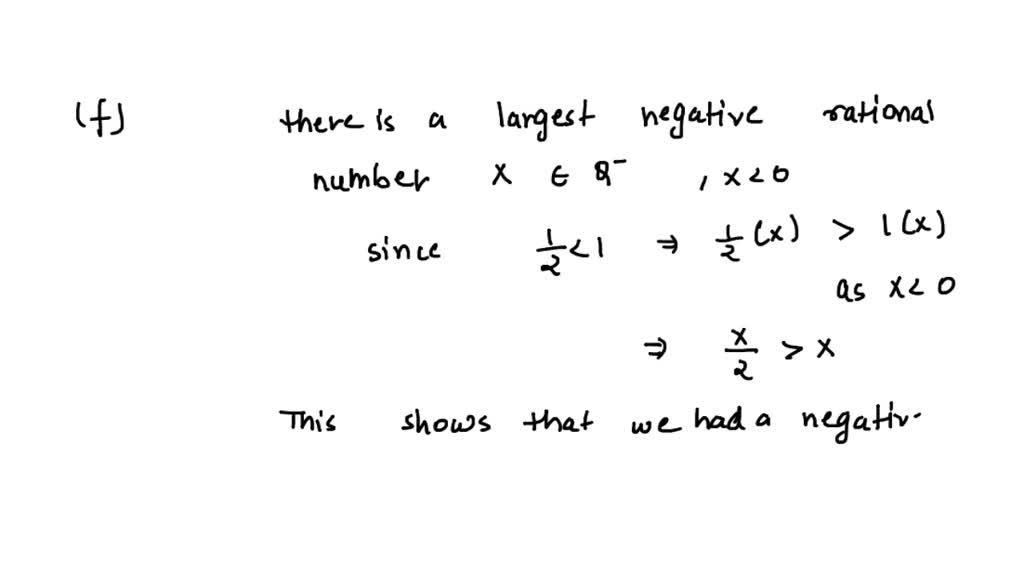 (f) there is a largest negative rational
number x ∈ Q⁻ , x<0
since 1/2 < 1 ⇒ 1/2 (x) > 1(x)
as x< 0
⇒ x/2 > x
This shows that we had a negativ